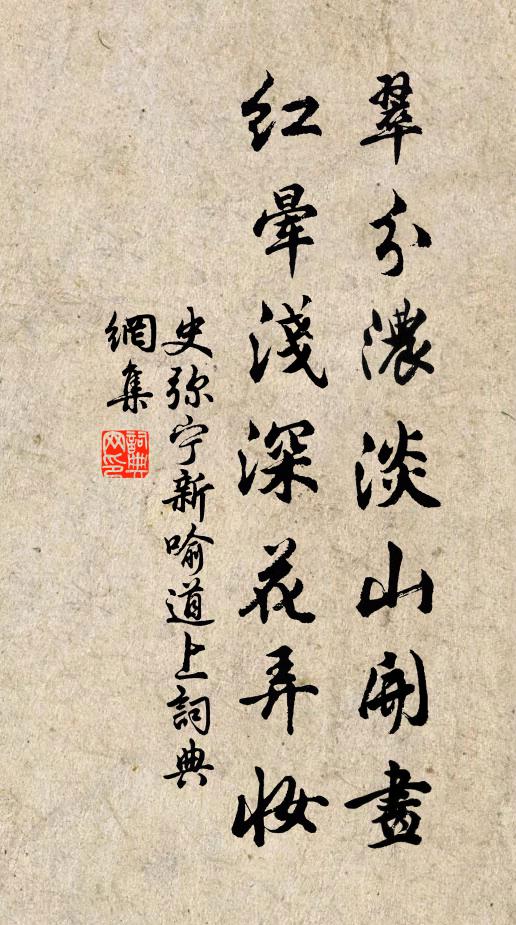 翠分濃淡山開畫
紅暈淺深花弄妝
史弥宁新喻道上詞典
網集
詞典网印